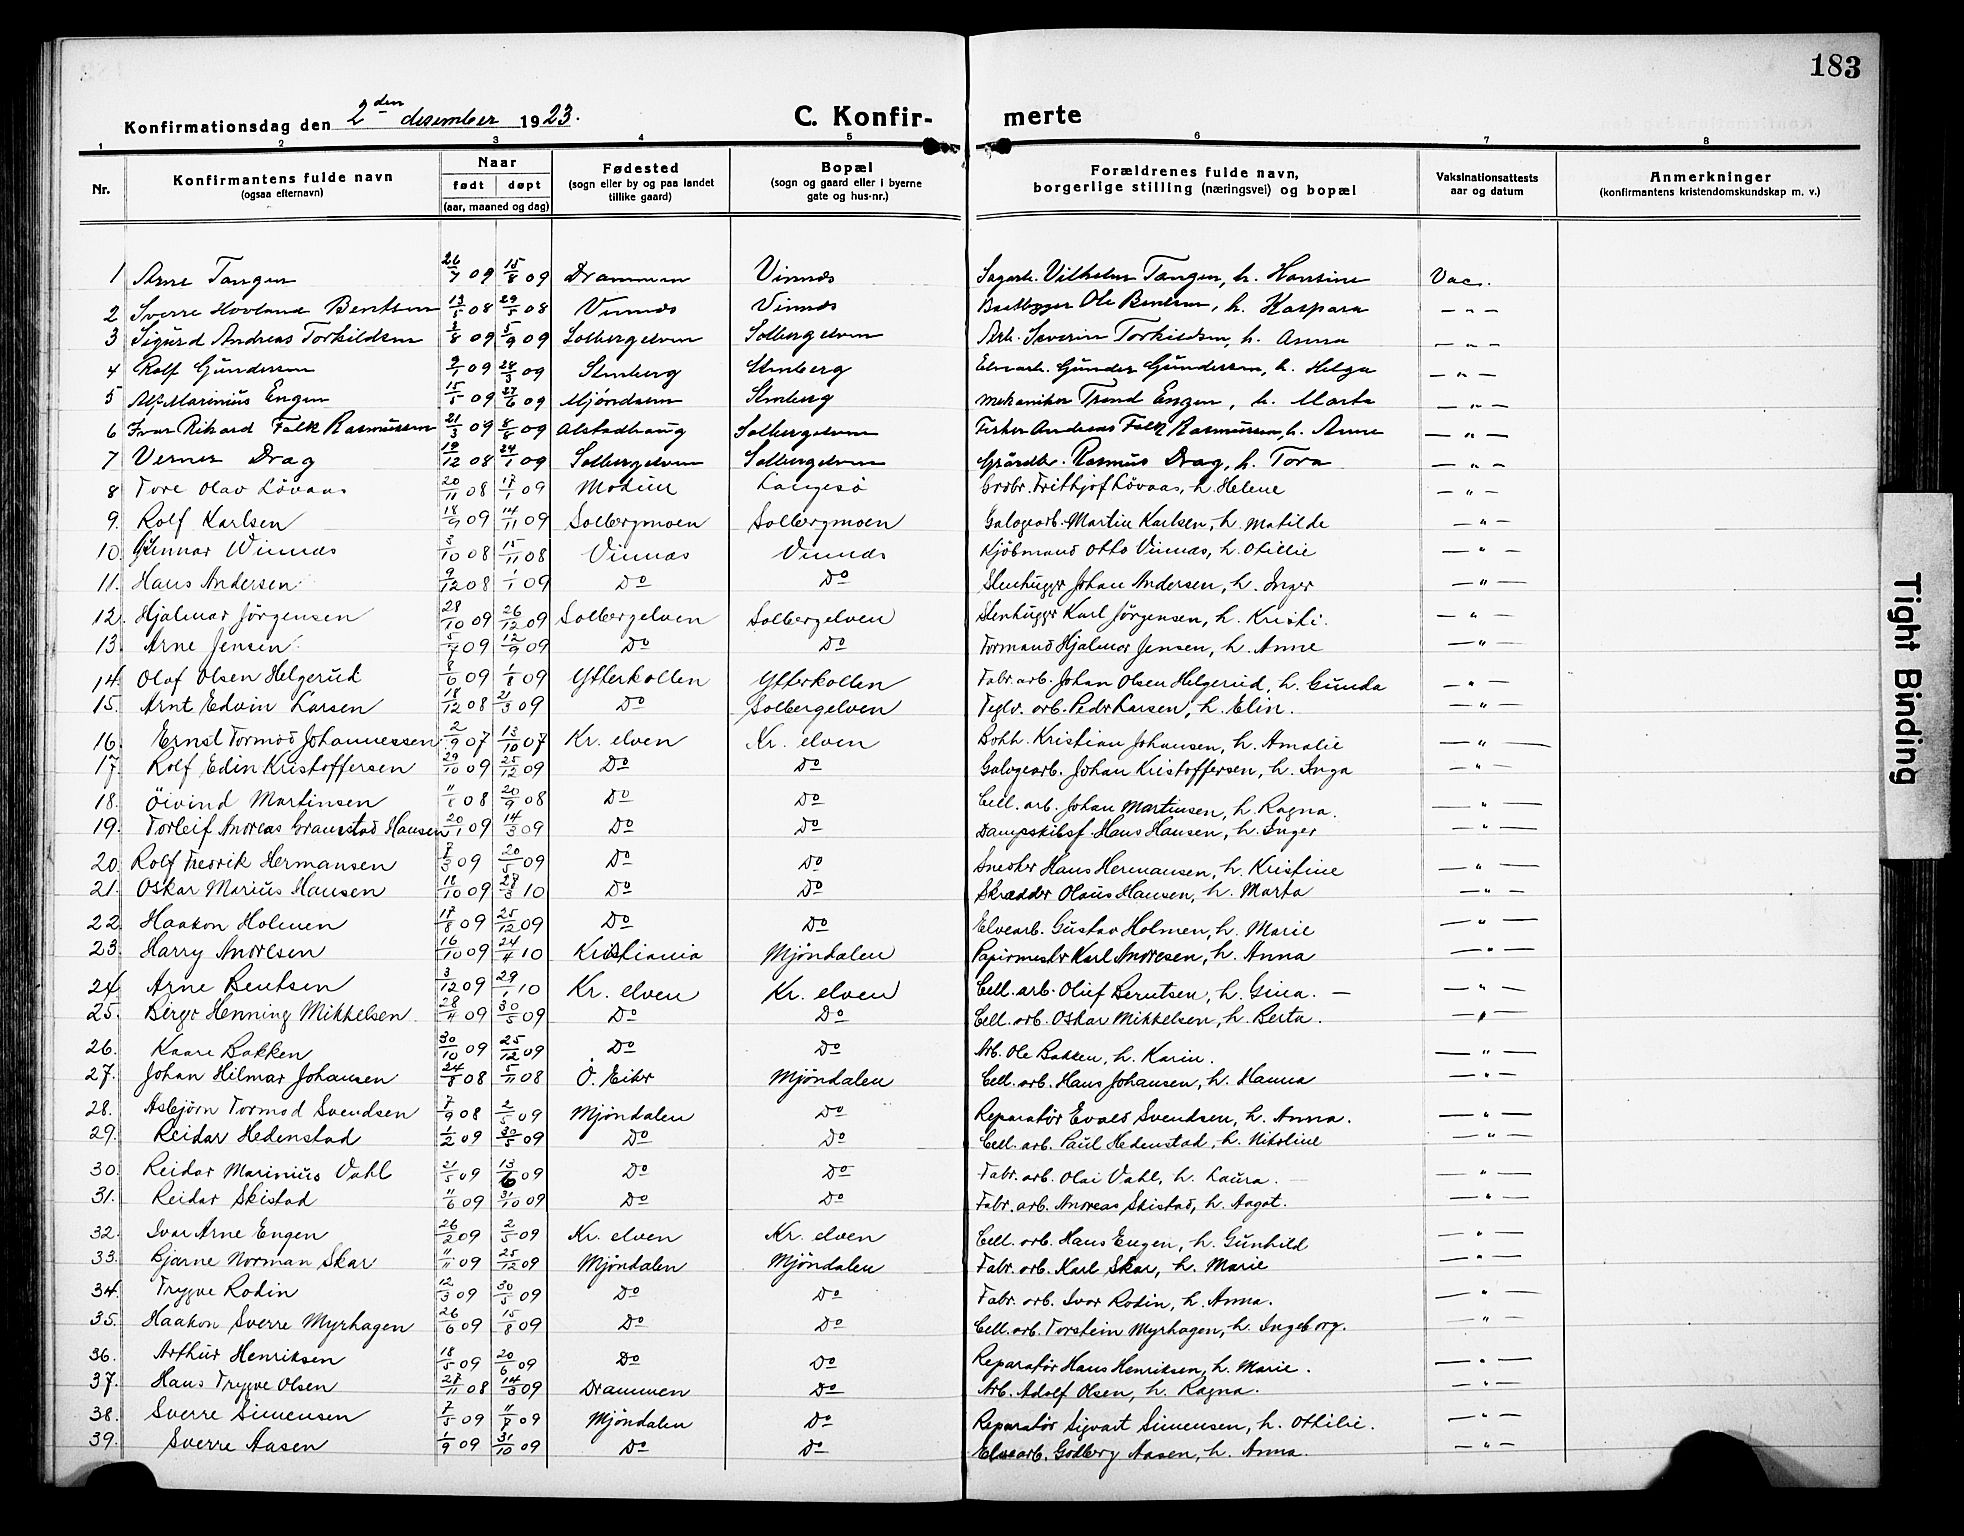 183
Konfirmationsdag den 2den desember 1923.
C. Konfirmerte
1 2 3 4 5 6 7 8
Nr. Konfirmantens fulde navn (ogsaa efternavn) Naar født døpt (aar, maaned og dag) Fødested (sogn eller by og paa landet tillike gaard) Bopæl (sogn og gaard eller i byerne gate og hus-nr.) Forældrenes fulde navn, borgerlige stilling (næringsvei) og bopæl Vaksinationsattests aar og datum Anmerkninger (konfirmantens kristendomskundskap m. v.)
1 Arne Tangen 26/7 09 15/8 09 Drammen Vinnæs Sagarb. Vilhelm Tangen, h. Hansine Vac.
2 Sverre Hovland Bentsen 13/5 08 29/5 08 Vinnæs Vinnæs Baatbygger Ole Bentsen, h. Kaspara — " —
3 Sigurd Andreas Torkildsen 2/8 09 5/9 09 Solbergelven Solbergelven Arb. Severin Torkildsen, h. Anna — " —
4 Rolf Gundersen 2/1 09 28/3 09 Stenberg Stenberg Elvearb. Gunder Gundersen, h. Helga — " —
5 Alf Marinius Engen 15/5 09 27/6 09 Mjøndalen Stenberg Mekaniker Trond Engen, h. Marta — " —
6 Ivar Rikard Falk Rasmussen 21/3 09 8/8 09 Alstadhaug Solbergelven Fisker Andreas Falk Rasmussen, h. Anne — " —
7 Verner Drag 19/12 08 24/1 09 Solbergelven Solbergelven Gaardbr. Rasmus Drag, h. Tora — " —
8 Tore Olav Lövaas 20/11 08 17/1 09 Modum Langesö Grdbr. Frithjof Lövaas, h. Helene — " —
9. Rolf Karlsen 18/9 09 14/11 09 Solbergmoen Solbergmoen Galogearb. Martin Karlsen, h. Matilde — " —
10. Gunnar Vinnæs 3/10 08 15/11 08 Vinnæs Vinnæs Kjöbmand Otto Vinnæs, h. Otillie — " —
11. Hans Andersen 9/12 08 1/1 09 Do Do Stenhugger Johan Andersen, h. Inger — " —
12. Hjalmar Jörgensen 28/10 09 26/12 09 Solbergelven Solbergelven Stenhugger Karl Jörgensen, h. Kristi. — " —
13. Arne Jensen 5/7 09 12/9 09 Do Do Formand Hjalmar Jensen, h. Anne — " —
14. Olaf Olsen Helgerud 8/6 09 1/8 09 Ytterkollen Ytterkollen Fabr. arb. Johan Olsen Helgerud, h. Gunda — " —
15. Arnt Edvin Larsen 18/12 08 21/3 09 Do Solbergelven Teglv. arb. Peder Larsen, h. Elin. — " —
16. Ernst Tormod Johannessen 2/9 07 13/10 07 Kr. elven Kr. elven Bokh. Kristian Johansen, h. Amalie — " —
17. Rolf Edin Kristoffersen 29/10 09 25/12 09 Do Do Galogearb. Johan Kristoffersen, h. Inga — " —
18. Öivind Martinsen 11/8 08 20/9 08 Do Do Cell. arb. Johan Martinsen, h. Ragna. — " —
19. Torleif Andreas Granstad Hansen 20/1 09 14/3 09 Do Do Dampskibsf. Hans Hansen, h. Inger — " —
20. Rolf Fredrik Hermansen 7/3 09 20/5 09 Do Do Snedker Hans Hermansen, h. Kristine — " —
21. Oskar Marius Hansen 18/10 09 28/3 10 Do Do Skrædder Olaus Hansen, h. Marta — " —
22. Haakon Holmen 17/8 09 25/12 09 Do Do Elvearb. Gustav Holmen, h. Marie — " —
23. Harry Andresen 16/10 09 24/4 10 Kristiania Mjöndalen Papirmester Karl Andresen, h. Anna — " —
24. Arne Bentsen 3/12 09 29/1 10 Kr. elven Kr. elven Cell. arb. Oluf Berntsen, h. Gina. — — " —
25. Birger Henning Mikkelsen 28/11 09 30/5 09 Do Do Cell. arb. Oskar Mikkelsen, h. Berta. — " —
26. Kaare Bakken 30/10 09 25/12 09 Do Do Arb. Ole Bakken, h. Karin. — " —
27. Johan Hilmar Johansen 24/8 08 5/11 08 Ö. Eiker Mjöndalen Cell. arb. Hans Johansen, h. Hanna — " —
28. Asbjörn Tormod Svendsen 7/9 08 2/5 09 Mjöndalen Do Reparatör Evald Svendsen, h. Anna. — " —
29. Reidar Hedenstad 1/2 09 30/5 09 Do Do Cell. arb. Paul Hedenstad, h. Nikoline — " —
30. Reidar Marinius Vahl 21/5 09 13/6 09 Do Do Fabr. arb. Olai Vahl, h. Laura. — " —
31. Reidar Skistad 11/6 09 31/10 09 Do Do Fabr. arb. Andreas Skistad, h. Aagot. — " —
32. Ivar Arne Engen 26/2 09 2/5 09 Kr. elven Kr. elven Cell. arb. Hans Engen, h. Gunhild — " —
33. Bjarne Norman Skar 11/11 09 25/12 09 Mjöndalen Mjöndalen Fabr. arb. Karl Skar, h. Marie — " —
34. Trygve Rodin 12/3 09 30/5 09 Do Do Fabr. arb. Ivar Rodin, h. Anna. — " —
35. Haakon Sverre Myrhagen 26/6 09 15/8 09 Do Do Cell. arb. Torstein Myrhagen, h. Ingeborg. — " —
36. Arthur Henriksen 18/5 09 20/6 09 Do Do Reparatör Hans Henriksen, h. Marie. — " —
37. Hans Trygve Olsen 27/11 08 14/3 09 Drammen Do Arb. Adolf Olsen, h. Ragna. — " —
38. Sverre Simensen 7/5 09 11/7 09 Mjöndalen Do Reparatör Sigvart Simensen, h. Othilie. — " —
39. Sverre Aasen 1/9 09 31/10 09 Do Do Elvearb. Godberg Aasen, h. Anna. — " —
Tight Binding